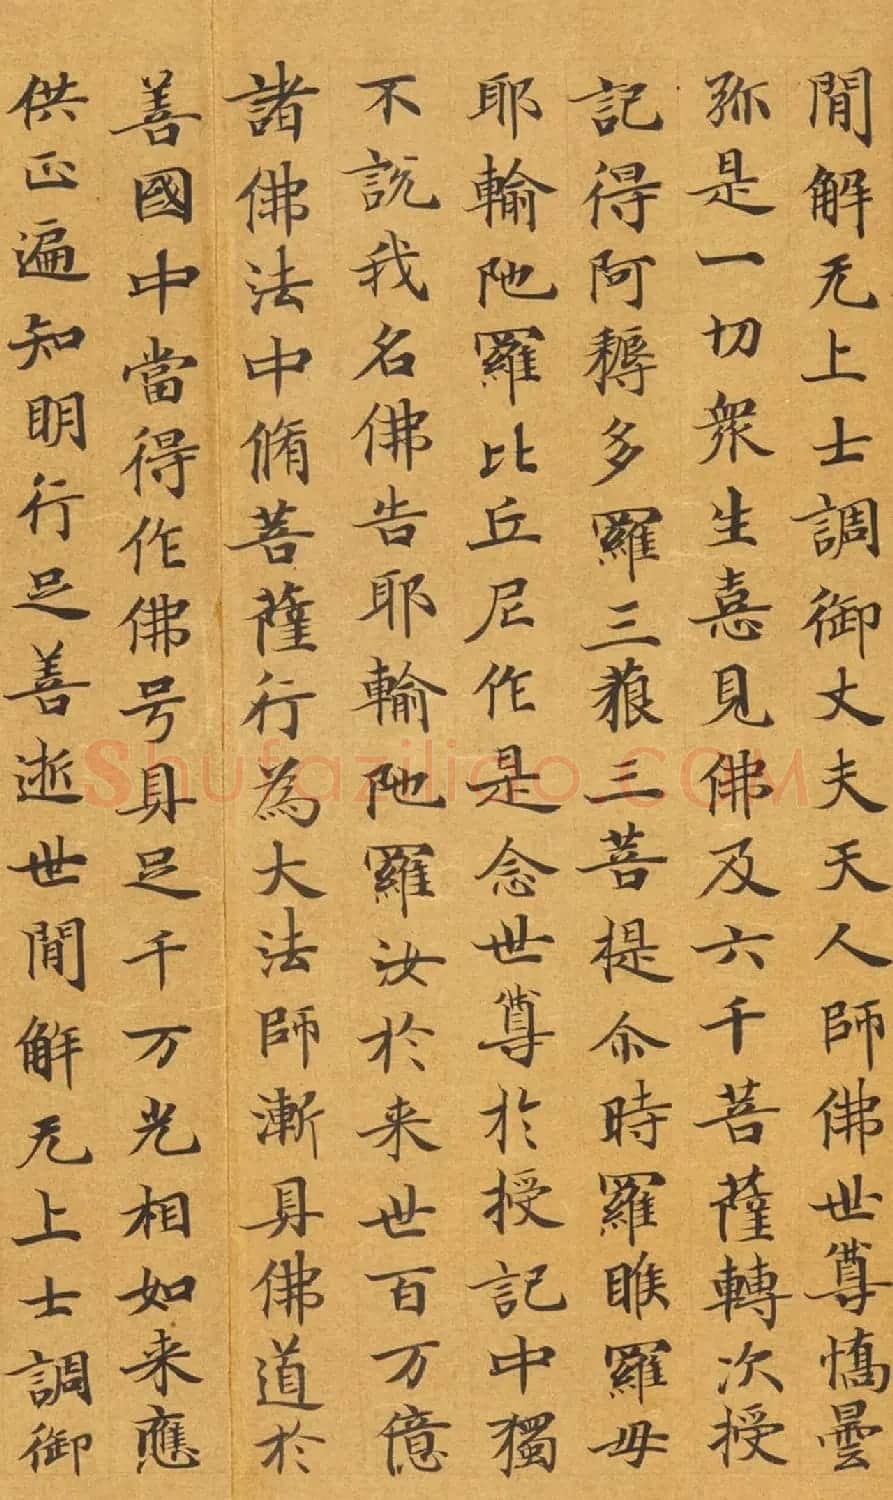 閒解无上士調御丈夫天人師佛世尊憍曇
弥是一切衆生憙見佛及六千菩薩轉次授
記得阿耨多羅三藐三菩提尒時羅睺羅母
耶輸陁羅比丘尼作是念世尊於授記中獨
不說我名佛告耶輸陁羅汝於来世百万億
諸佛法中脩菩薩行為大法師漸具佛道於
善國中當得作佛号具足千万光相如来應
供正遍知明行足善逝世閒解无上士調御
Shufaziliao.COM